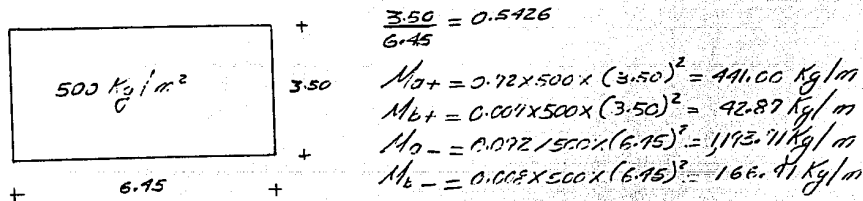 500 Kg/m²
3.50
6.45
3.50/6.45 = 0.5426
Ma+ = 0.72x500x(3.50)² = 441.00 Kg/m
Mb+ = 0.007x500x(3.50)² = 42.87 Kg/m
Ma- = 0.072/500x(6.45)² = 1,193.71 Kg/m
Mb- = 0.008x500x(6.45)² = 166.41 Kg/m